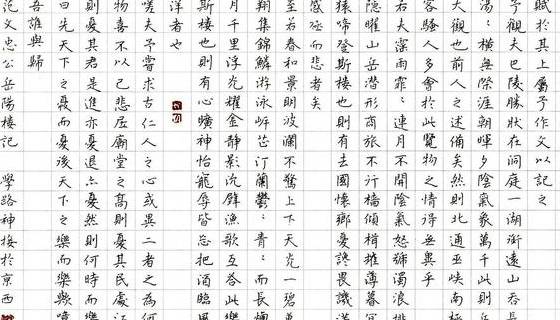 賦於其上屬予作文以記之
予觀夫巴陵勝狀在洞庭一湖銜遠山吞長
湯：橫無際涯朝暉夕陰氣象萬千此則岳
大觀也前人之述備矣然則北通巫峽南極
客騷人多會於此覽物之情得無異乎
若夫霪雨霏：連月不開陰風怒號濁浪排
隱曜山岳潛形商旅不行檣傾楫摧薄暮冥
猿啼登斯樓也則有去國懷鄉憂讒畏譏滿
感極而悲者矣
至若春和景明波瀾不驚上下天光一碧萬
翔集錦鱗游泳岸芷汀蘭鬱：青：而長煙
月千里浮光耀金靜影沉璧漁歌互答此樂
斯樓也則有心曠神怡寵辱皆忘把酒臨風
洋者也
嗟夫予嘗求古仁人之心或異二者之為何
物喜不以己悲居廟堂之高則憂其民處江
則憂其君是進亦憂退亦憂然則何時而樂
曰先天下之憂而憂後天下之樂而樂歟噫
吾誰與歸
范文忠公岳陽樓記 學路神接於京西